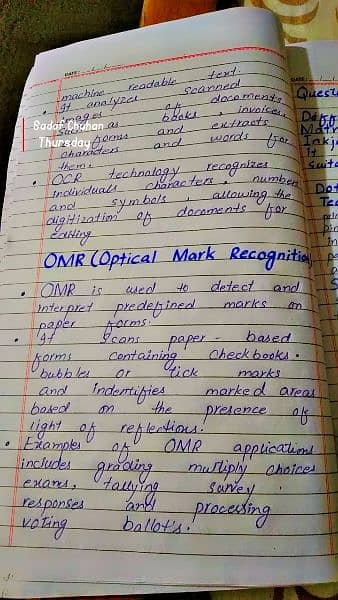 DATE:
machine readable text.
It analyzes scanned
images of documents
such as books, invoices,
forms and extracts
characters and words for
them.
OCR technology recognizes
individuals characters, number
and symbols, allowing the
digitization of doroments for
editing
Sadaf Chuhan
Thursday
OMR (Optical Mark Recognition)
OMR is used to detect and
interpret predefined marks on
paper forms.
It Scans paper-based
forms containing Checkbooks.
bubbles or tick marks
and indentifies marked areas
based on the presence of
light of reflections.
Examples of OMR applications
includes grading multiply choices
exams, tallying survey
responses and processing
voting ballot's.
DATE:
Quest
it
Dot